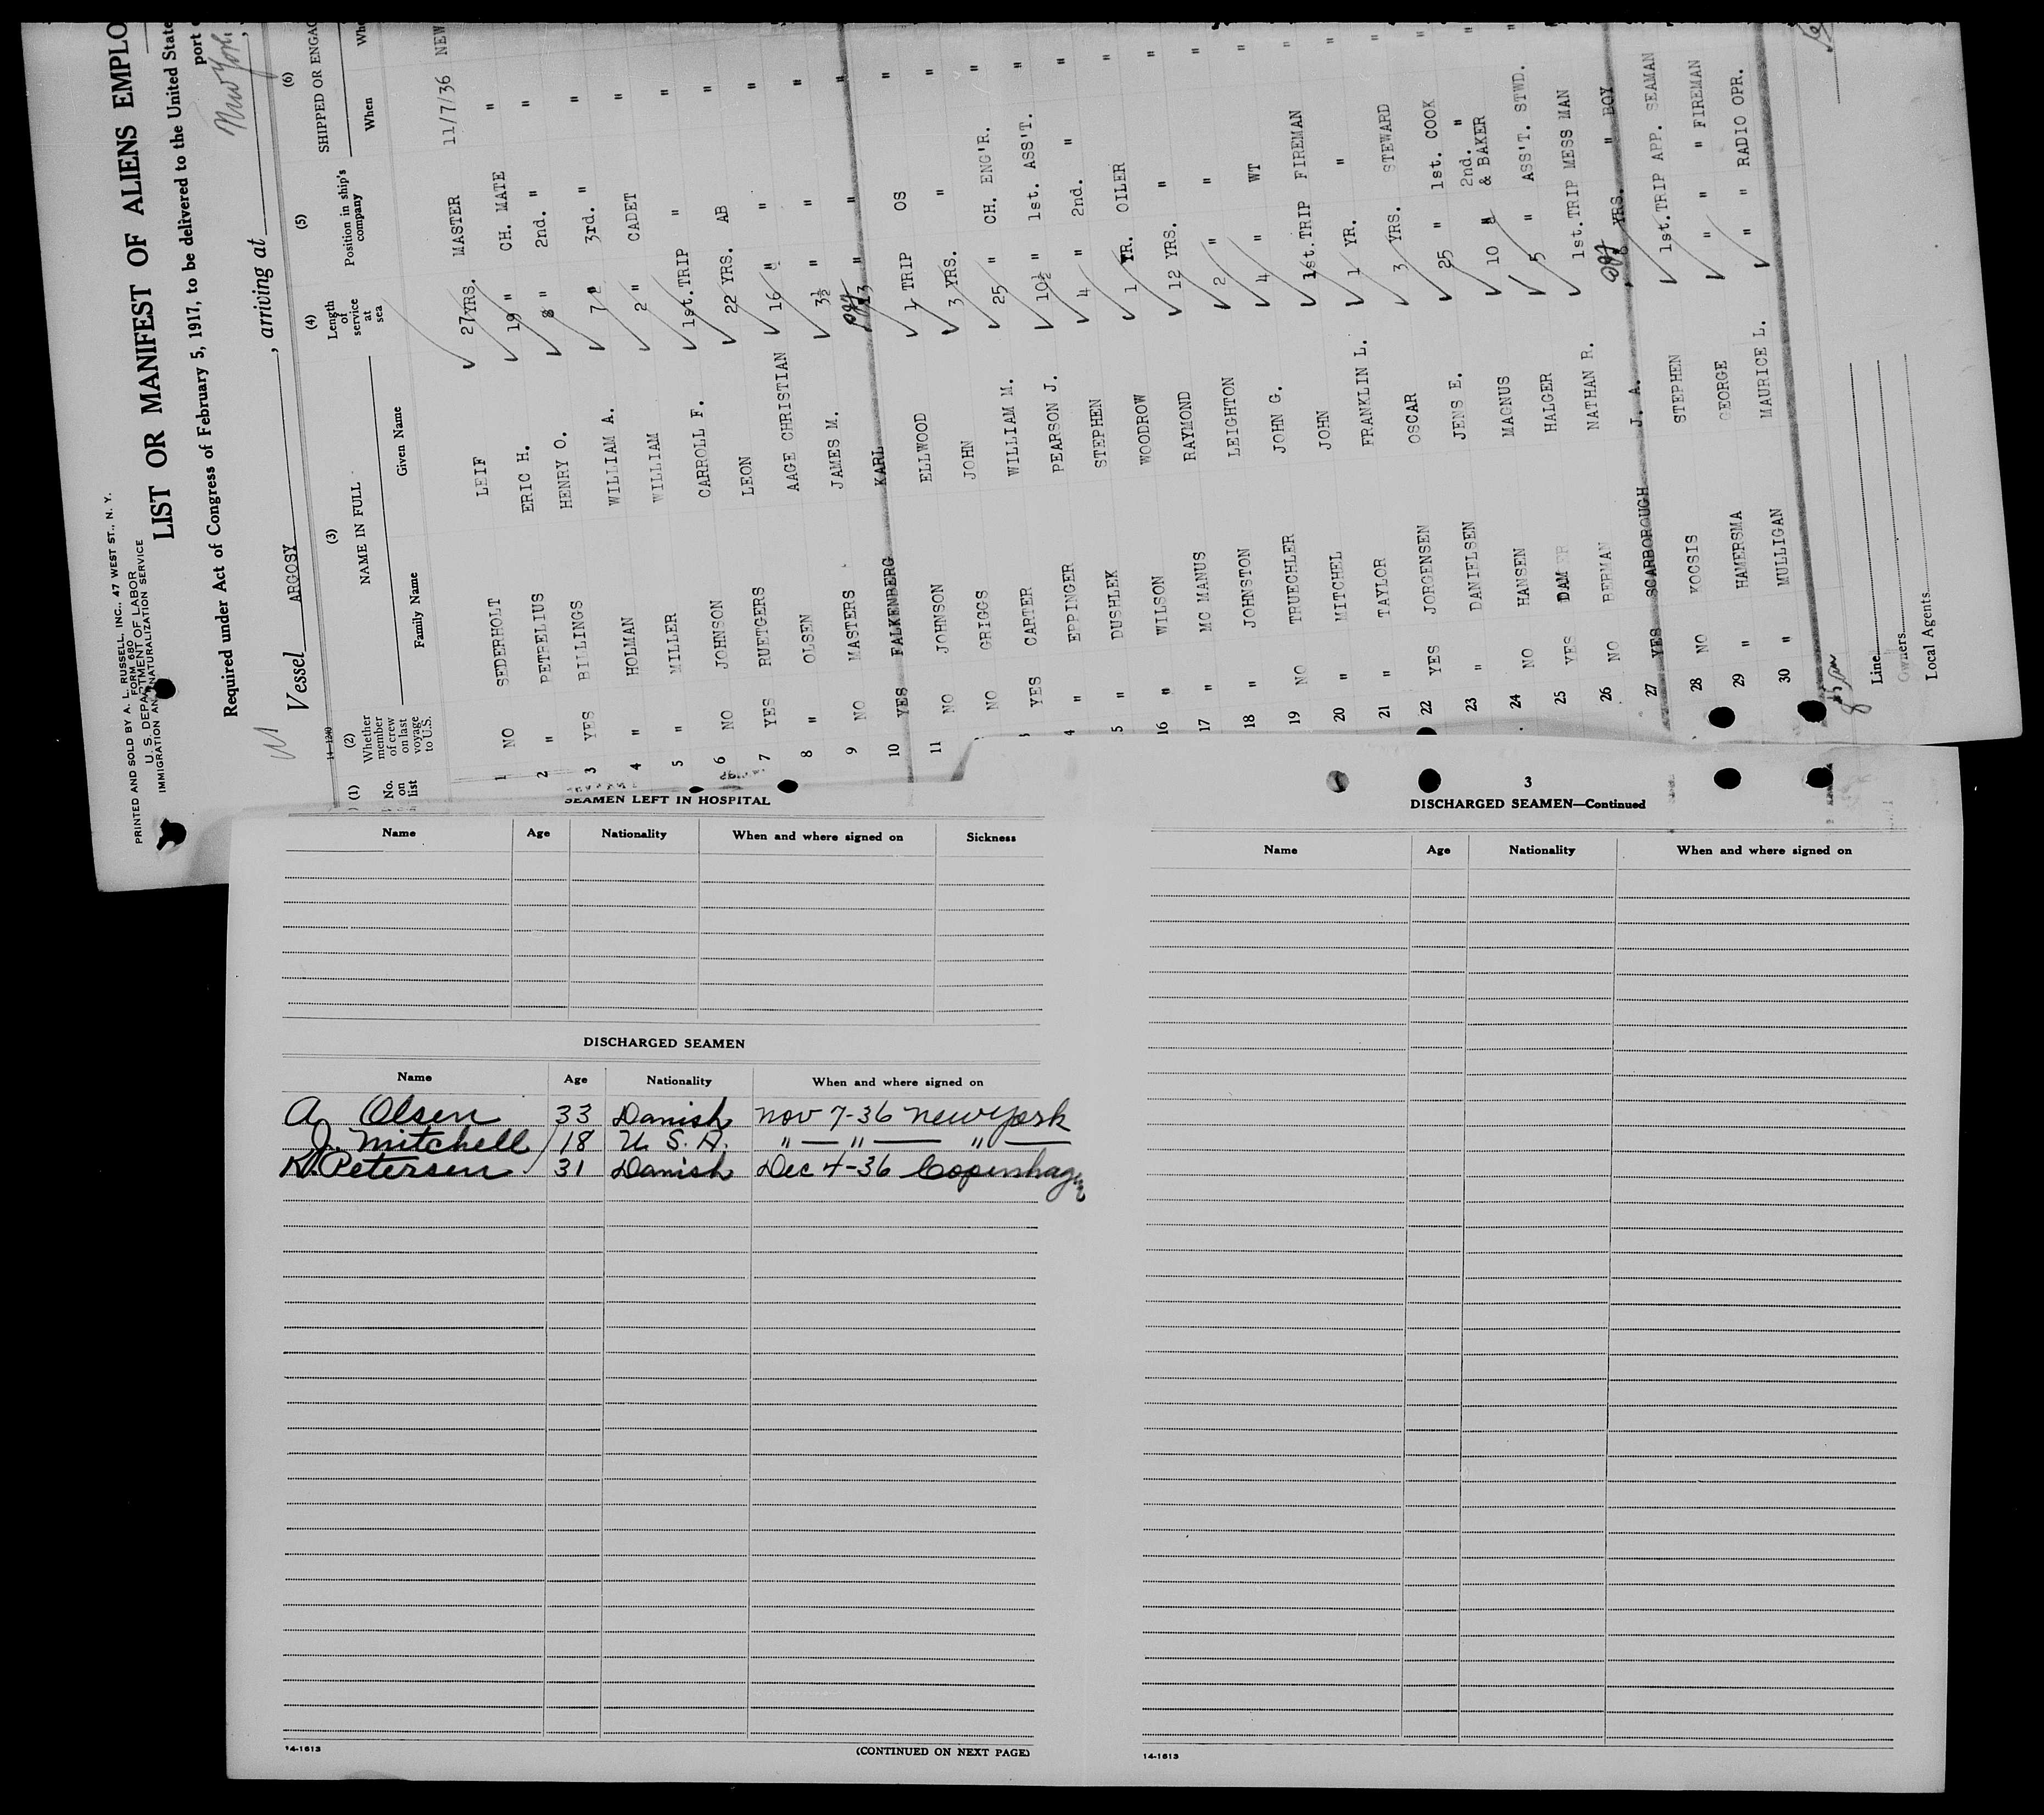 PRINTED AND SOLD BY A. L. RUSSELL, INC., 47 WEST ST., N. Y.
FORM 680
U. S. DEPARTMENT OF LABOR
IMMIGRATION AND NATURALIZATION SERVICE
LIST OR MANIFEST OF ALIENS EMPLO
Required under Act of Congress of February 5, 1917, to be delivered to the United State
port
Vessel ARGOSY , arriving at New York,
(1) (2) (3) (4) (5) (6)
No. on list
Whether member of crew on last voyage to U.S.
NAME IN FULL
Family Name Given Name
Length of service at sea
Position in ship's company
SHIPPED OR ENGAG
When Whe
1 NO SEDERHOLT LEIF 27YRS. MASTER 11/7/36 NEW
2 " PETRELIUS ERIC H. 19 " CH. MATE " "
3 YES BILLINGS HENRY O. 8 " 2nd. " " "
4 " HOLMAN WILLIAM A. 7 " 3rd. " " "
5 " MILLER WILLIAM 2 " CADET " "
6 NO JOHNSON CARROLL F. 1st. TRIP " " "
7 YES RUETGERS LEON 22 YRS. AB " "
8 " OLSEN AAGE CHRISTIAN 16 " " " "
9 NO MASTERS JAMES M. 3½ " " " "
10 YES FALKENBERG KARL 13 " " " "
11 NO JOHNSON ELLWOOD 1 TRIP OS "
NO GRIGGS JOHN 3 YRS. " "
YES CARTER WILLIAM M. 25 " CH. ENG'R. "
4 " EPPINGER PEARSON J. 10½ " 1st. ASS'T. "
5 " DUSHLEK STEPHEN 4 " 2nd. " "
16 " WILSON WOODROW 1 YR. OILER "
17 " MC MANUS RAYMOND 12 YRS. " "
18 " JOHNSTON LEIGHTON 2 " " "
19 NO TRUECHLER JOHN G. 4 " WT "
20 " MITCHEL JOHN 1st.TRIP FIREMAN "
21 " TAYLOR FRANKLIN L. 1 YR. " "
22 YES JORGENSEN OSCAR 3 YRS. STEWARD "
23 " DANIELSEN JENS E. 25 " 1st. COOK "
24 NO HANSEN MAGNUS 10 " 2nd. " & BAKER "
25 YES DAM HALGER 5 " ASS'T. STWD. "
26 NO BERMAN NATHAN R. 1st.TRIP MESS MAN
27 YES SCARBOROUGH J. A. YRS. " BOY
28 NO KOCSIS STEPHEN 1st.TRIP APP. SEAMAN
29 " HAMERSMA GEORGE " " FIREMAN
30 " MULLIGAN MAURICE L. " " RADIO OPR.
Line
Owners
Local Agents
SEAMEN LEFT IN HOSPITAL
Name Age Nationality When and where signed on Sickness
DISCHARGED SEAMEN
Name Age Nationality When and where signed on
A Olsen 33 Danish Nov 7-36 New York
J. Mitchell 18 U. S. A. " — " — " —
K. Petersen 31 Danish Dec 4-36 Copenhagen
14-1613
(CONTINUED ON NEXT PAGE)
3
DISCHARGED SEAMEN—Continued
Name Age Nationality When and where signed on
14-1613